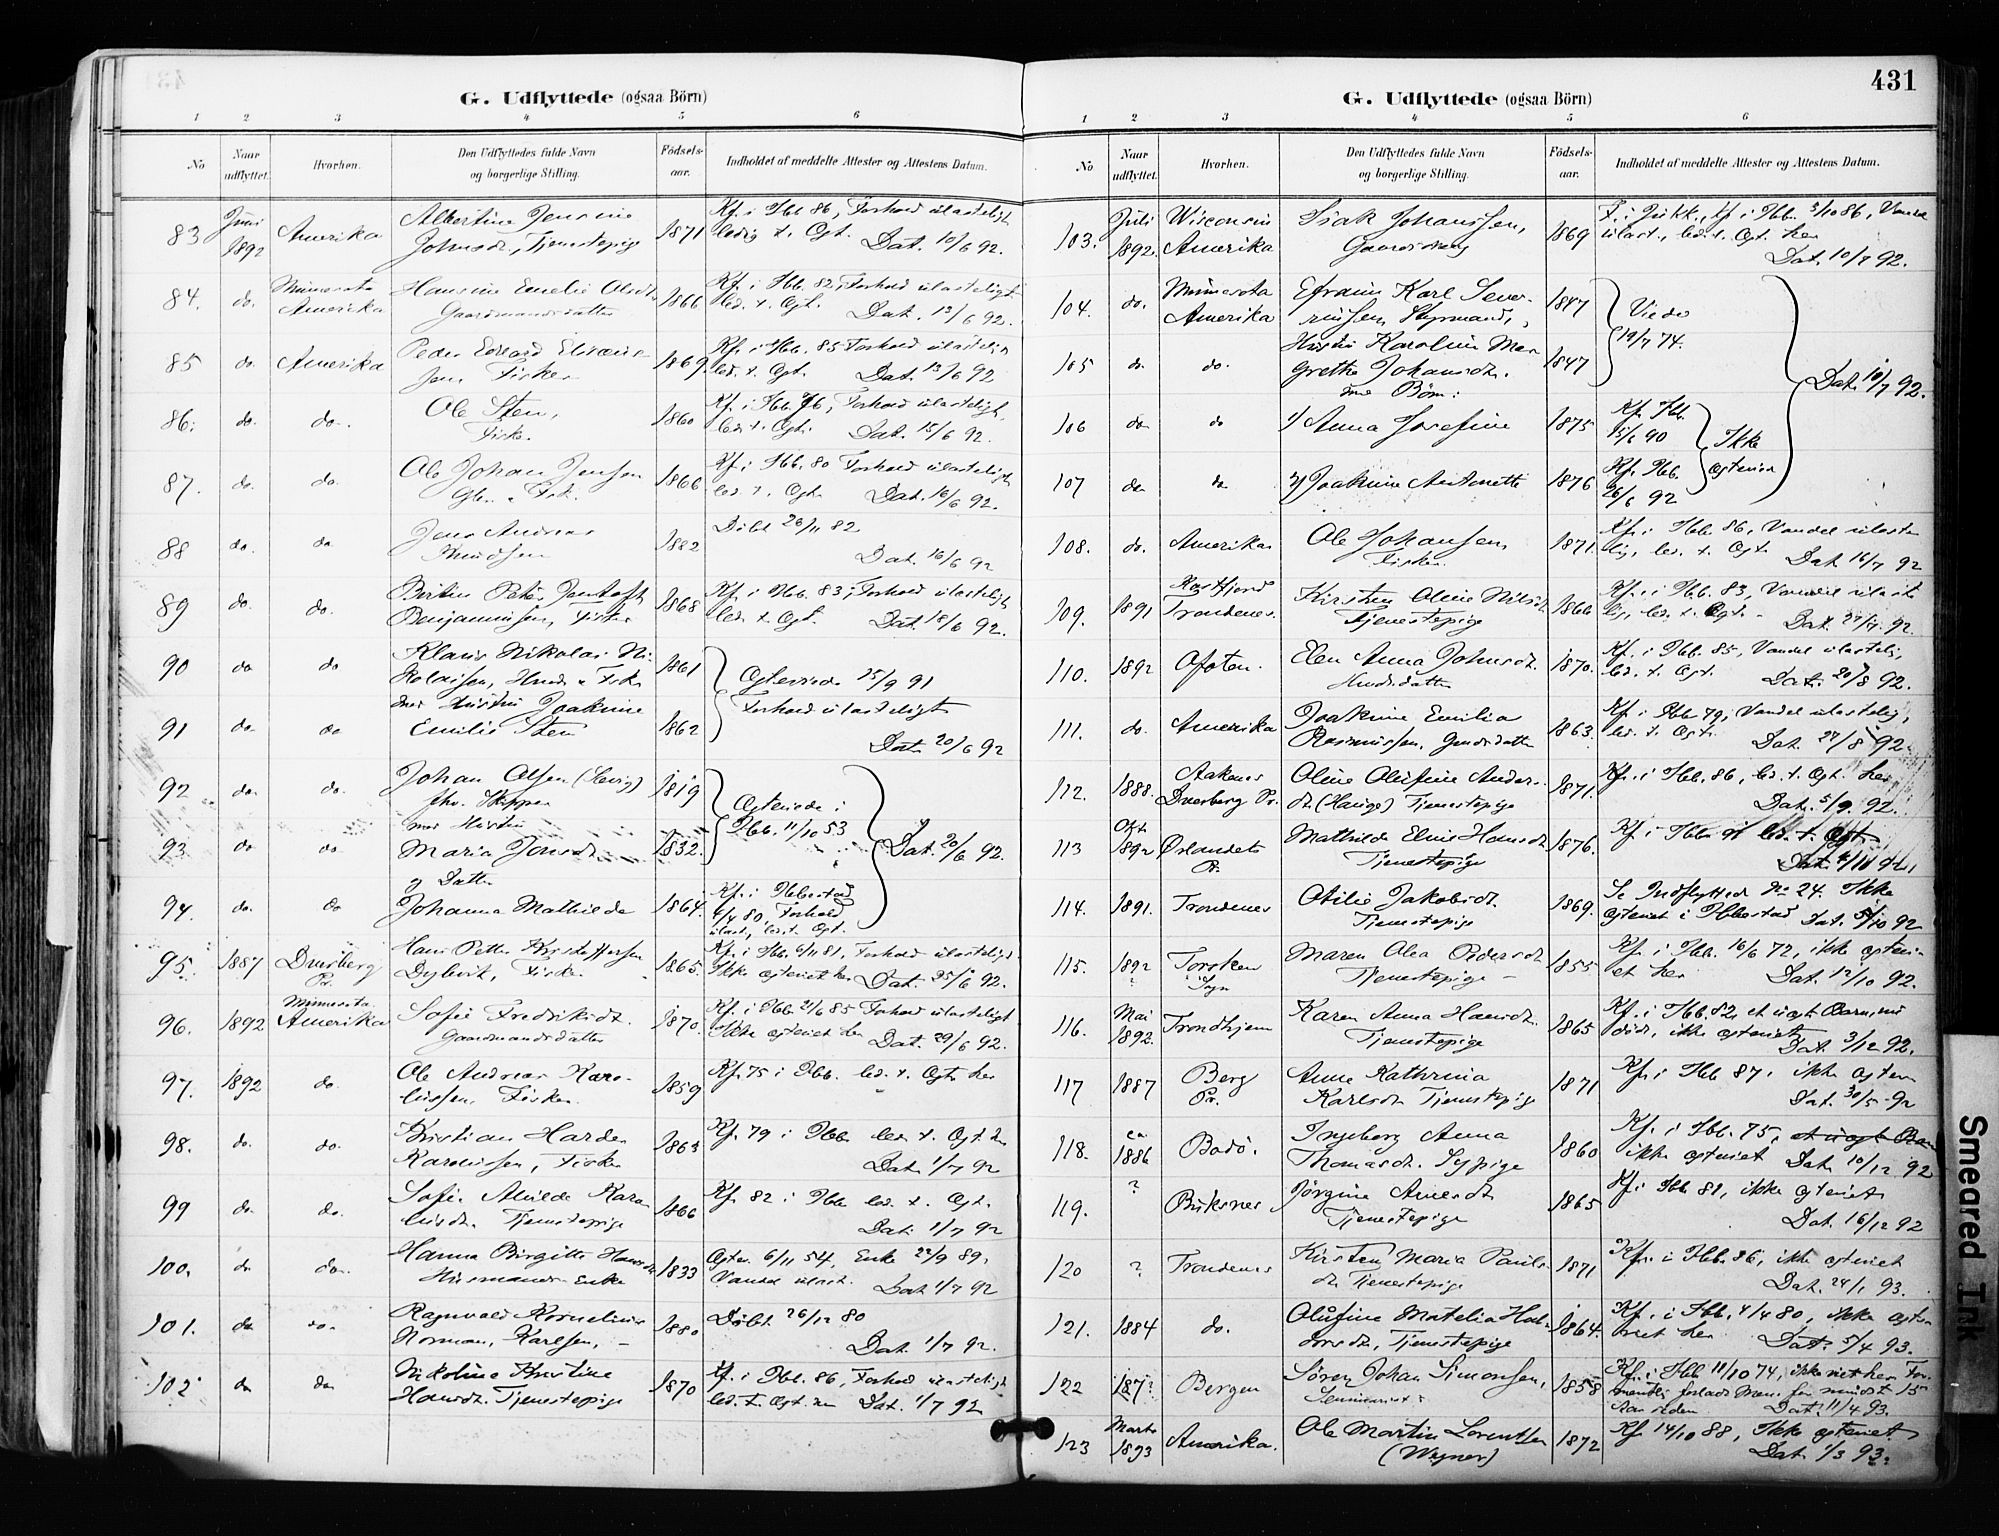 431
G. Udflyttede (ogsaa Börn)
1 2 3 4 5 6
No
Naar udflyttet.
Hvorhen.
Den Udflyttedes fulde Navn og borgerlige Stilling.
Födsels-aar.
Indholdet af meddelte Attester og Attestens Datum.
83 Juni 1892 Amerika Albertine Jensine Johnsdt., Tjenestepige 1871 Kf. i Ibb. 86, Forhold ulasteligt ledig t. Ægt. Dat. 10/6 92.
84. do. Minnesota Amerika Hansine Emelie Olsdt. Gaardmandsdatter 1866 Kf. i Ibb. 82, Forhold ulasteligt led. t. Ægt. Dat. 13/6 92.
85 do Amerika Peder Edvard Fisker 1869. Kf. i Ibb. 85 Forhold ulasteligt led. t. Ægt. Dat. 13/6 92
86. do. do. Ole Sten, Fisk. 1860 Kf. i Ibb. 76, Forhold ulasteligt, led. t. Ægt. Dat. 15/6 92.
87. do. do. Ole Johan Jensen Fisk. 1866 Kf. i Ibb. 80 Forhold ulasteligt led. t. Ægt. Dat. 16/6 92.
88 do. do Jens Andreas Knudsen 1882 Döbt 26/11 82 Dat. 16/6 92
89 do. do. Peter Benjaminsen, Fisker 1868 Kf. i Ibb. 83, Forhold ulasteligt led. t. Ægt. Dat. 18/6 92.
90 do do Klaus Nikolai Nikolaisen, Husm. & Fisker 1861 Ægteviede 25/9 91
med Hustru Joakime
91 do do Emilie Sten 1862 Forhold ulasteligt Dat. 20/6 92
92 do. do. Johan Olsen fhv. Skipper 1819 Ægteviede i Ibb. 11/10 53
med Hustru
93 do do Maria Jonsdt. 1832. Dat. 20/6 92.
og Datter
94. do. do Johanna Mathilde 1864. Kf. i Ibbestad 4/4 80, Forhold ulast., led. t. Ægt.
95. 1887 Dverberg Pr. Hans Petter Kristoffersen Fisker 1865. Kf. i Ibb. 81, Forhold ulasteligt Ikke ægteviet her Dat. 25/6 92.
96. 1892 Minnesota Amerika Sofie Fredriksdt. Gaardmandsdatter 1870. Kf. i Ibb. 21/6 85 Forhold ulasteligt Ikke ægteviet her Dat. 29/6 92.
97. 1892 do. Ole Andreas Karolussen, Fisker 1859 Kf. 75 i Ibb. led. t. Ægt. her
98. do. do. Kristian Karolussen, Fisker 1863 Kf. 79 i Ibb. led. t. Ægt. her Dat. 1/7 92
99 do do. Sofie Karolusdt. Tjenestepige 1866 Kf. 82 i Ibb. led. t. Ægt. Dat. 1/7 92
100. do do. Hanna Birgitte Hansdt. Husmands Enke 1833 Ægtev. 6/11 54, Enke 22/9 89, Vandel ulast. Dat. 1/7 92
101. do do. Ragnvald Kornelius Norman, Karlsen, 1880 Döbt 26/12 80 Dat. 1/7 92.
102 do do Nikoline Kristine Hansdt. Tjenestepige 1870 Kf. i Ibb. 86, Forhold ulasteligt led. t. Ægt. Dat. 1/7 92
G. Udflyttede (ogsaa Börn)
1 2 3 4 5 6
No
Naar udflyttet.
Hvorhen.
Den Udflyttedes fulde Navn og borgerlige Stilling.
Födsels-aar.
Indholdet af meddelte Attester og Attestens Datum.
103. Juli 1892. Wisconsin Amerika Isak Johanssen, 1869 kf. i Ibb. 3/10 86, Vandel ulast., led. t. Ægt. her Dat. 10/7 92.
104. do. Minnesota Amerika Efraim Karl Severinsen, Styrmand, 1847 Viede 19/7 74.
105 do do. Hustru Karoline Margrethe Johansdt. 1847 Dat. 10/7 92.
med Börn:
106 do do 1) Anna Josefine 1875 Kf. Ibb. 15/6 90 Ikke
107 do do 2) Joakime Antonette 1876 Kf. Ibb. 26/6 92 ægteviet
108. do. Amerika Ole Johansen, Fisker 1871. Kf. i Ibb. 86, Vandel ulastelig, led. t. Ægt. Dat. 16/7 92
109. 1891 Kasfjord Trondenes. Kirsten Oline Nilsdt. Tjenestepige 1866 Kf. i Ibb. 83, Vandel ulastelig, led. t. Ægt. Dat. 27/7. 92.
110. 1892 Ofoten. Elen Anna Johnsdt. 1870. Kf. i Ibb. 85, Vandel ulastelig, led. t. Ægt. Dat. 20/8 92.
111. do. Amerika Joakime Emilia Rasmussen, 1863. Kf. i Ibb. 79, Vandel ulastelig, led. t. Ægt. Dat. 27/8 92.
112. 1888. Aakenes Dverberg Pr. Oline Olufine Andersdt. (Hauge) Tjenestepige 1871. Kf. i Ibb. 86, led. t. Ægt. her Dat. 5/9 92.
113 Okt. 1892 Örlandets Pr. Mathilde Eline Hansdt. Tjenestepige 1876. Kf. i Ibb. 91 led. t. Ægt.
114. 1891. Trondenes Otilie Jakobsdt. Tjenestepige 1869. Se Indflyttede No 24. Ikke ægteviet i Ibbestad Dat. 5/10 92
115. 1892 ? Torsken Sogn Maren Olea Pedersdt. Tjenestepige 1855 Kf. i Ibb. 16/6 72, ikke ægteviet her Dat. 12/10 92.
116. Mai 1892. Trondhjem Karen Anna Hansdt. Tjenestepige 1865 Kf. i Ibb. 82, et uægt. Barn, nu död, ikke ægteviet Dat. 3/12 92.
117 1887 Berg Pr. Anne Kathrina Karlsdt. Tjenestepige 1871 Kf. i Ibb. 87, ikke ægtev. Dat. 30/5 92
118. ca. 1886 Bodö. Ingeborg Anna Thomasdt. Sypige 1860 Kf. i Ibb. 75, et uægt. Barn ikke ægteviet Dat. 10/12 92
119. ? Buksnes Jörgine Arnesdt. Tjenestepige 1865 Kf. i Ibb. 81, ikke ægteviet Dat. 16/12 92
120 ? Trondenes Kirsten Maria Paulsdt. Tjenestepige 1871 Kf. i Ibb. 86, ikke ægteviet Dat. 24/1 93.
121. 1884 do. Olufine Matelia Tjenestepige 1864. Kf. i Ibb. 4/4 80, ikke ægteviet her Dat. 5/4 93.
122 187? Bergen Sören Johan Simonsen, Seminarist 1858 Kf. i Ibb. 11/10 74, ikke viet her. for mindst 15 Aar siden Dat. 11/4 93.
123 Marts 1893 Amerika. Ole Martin Lorentsen (Wagner) 1872 Kf. 14/10 88, Ikke ægteviet Dat. 1/3 93.
Smeared Ink